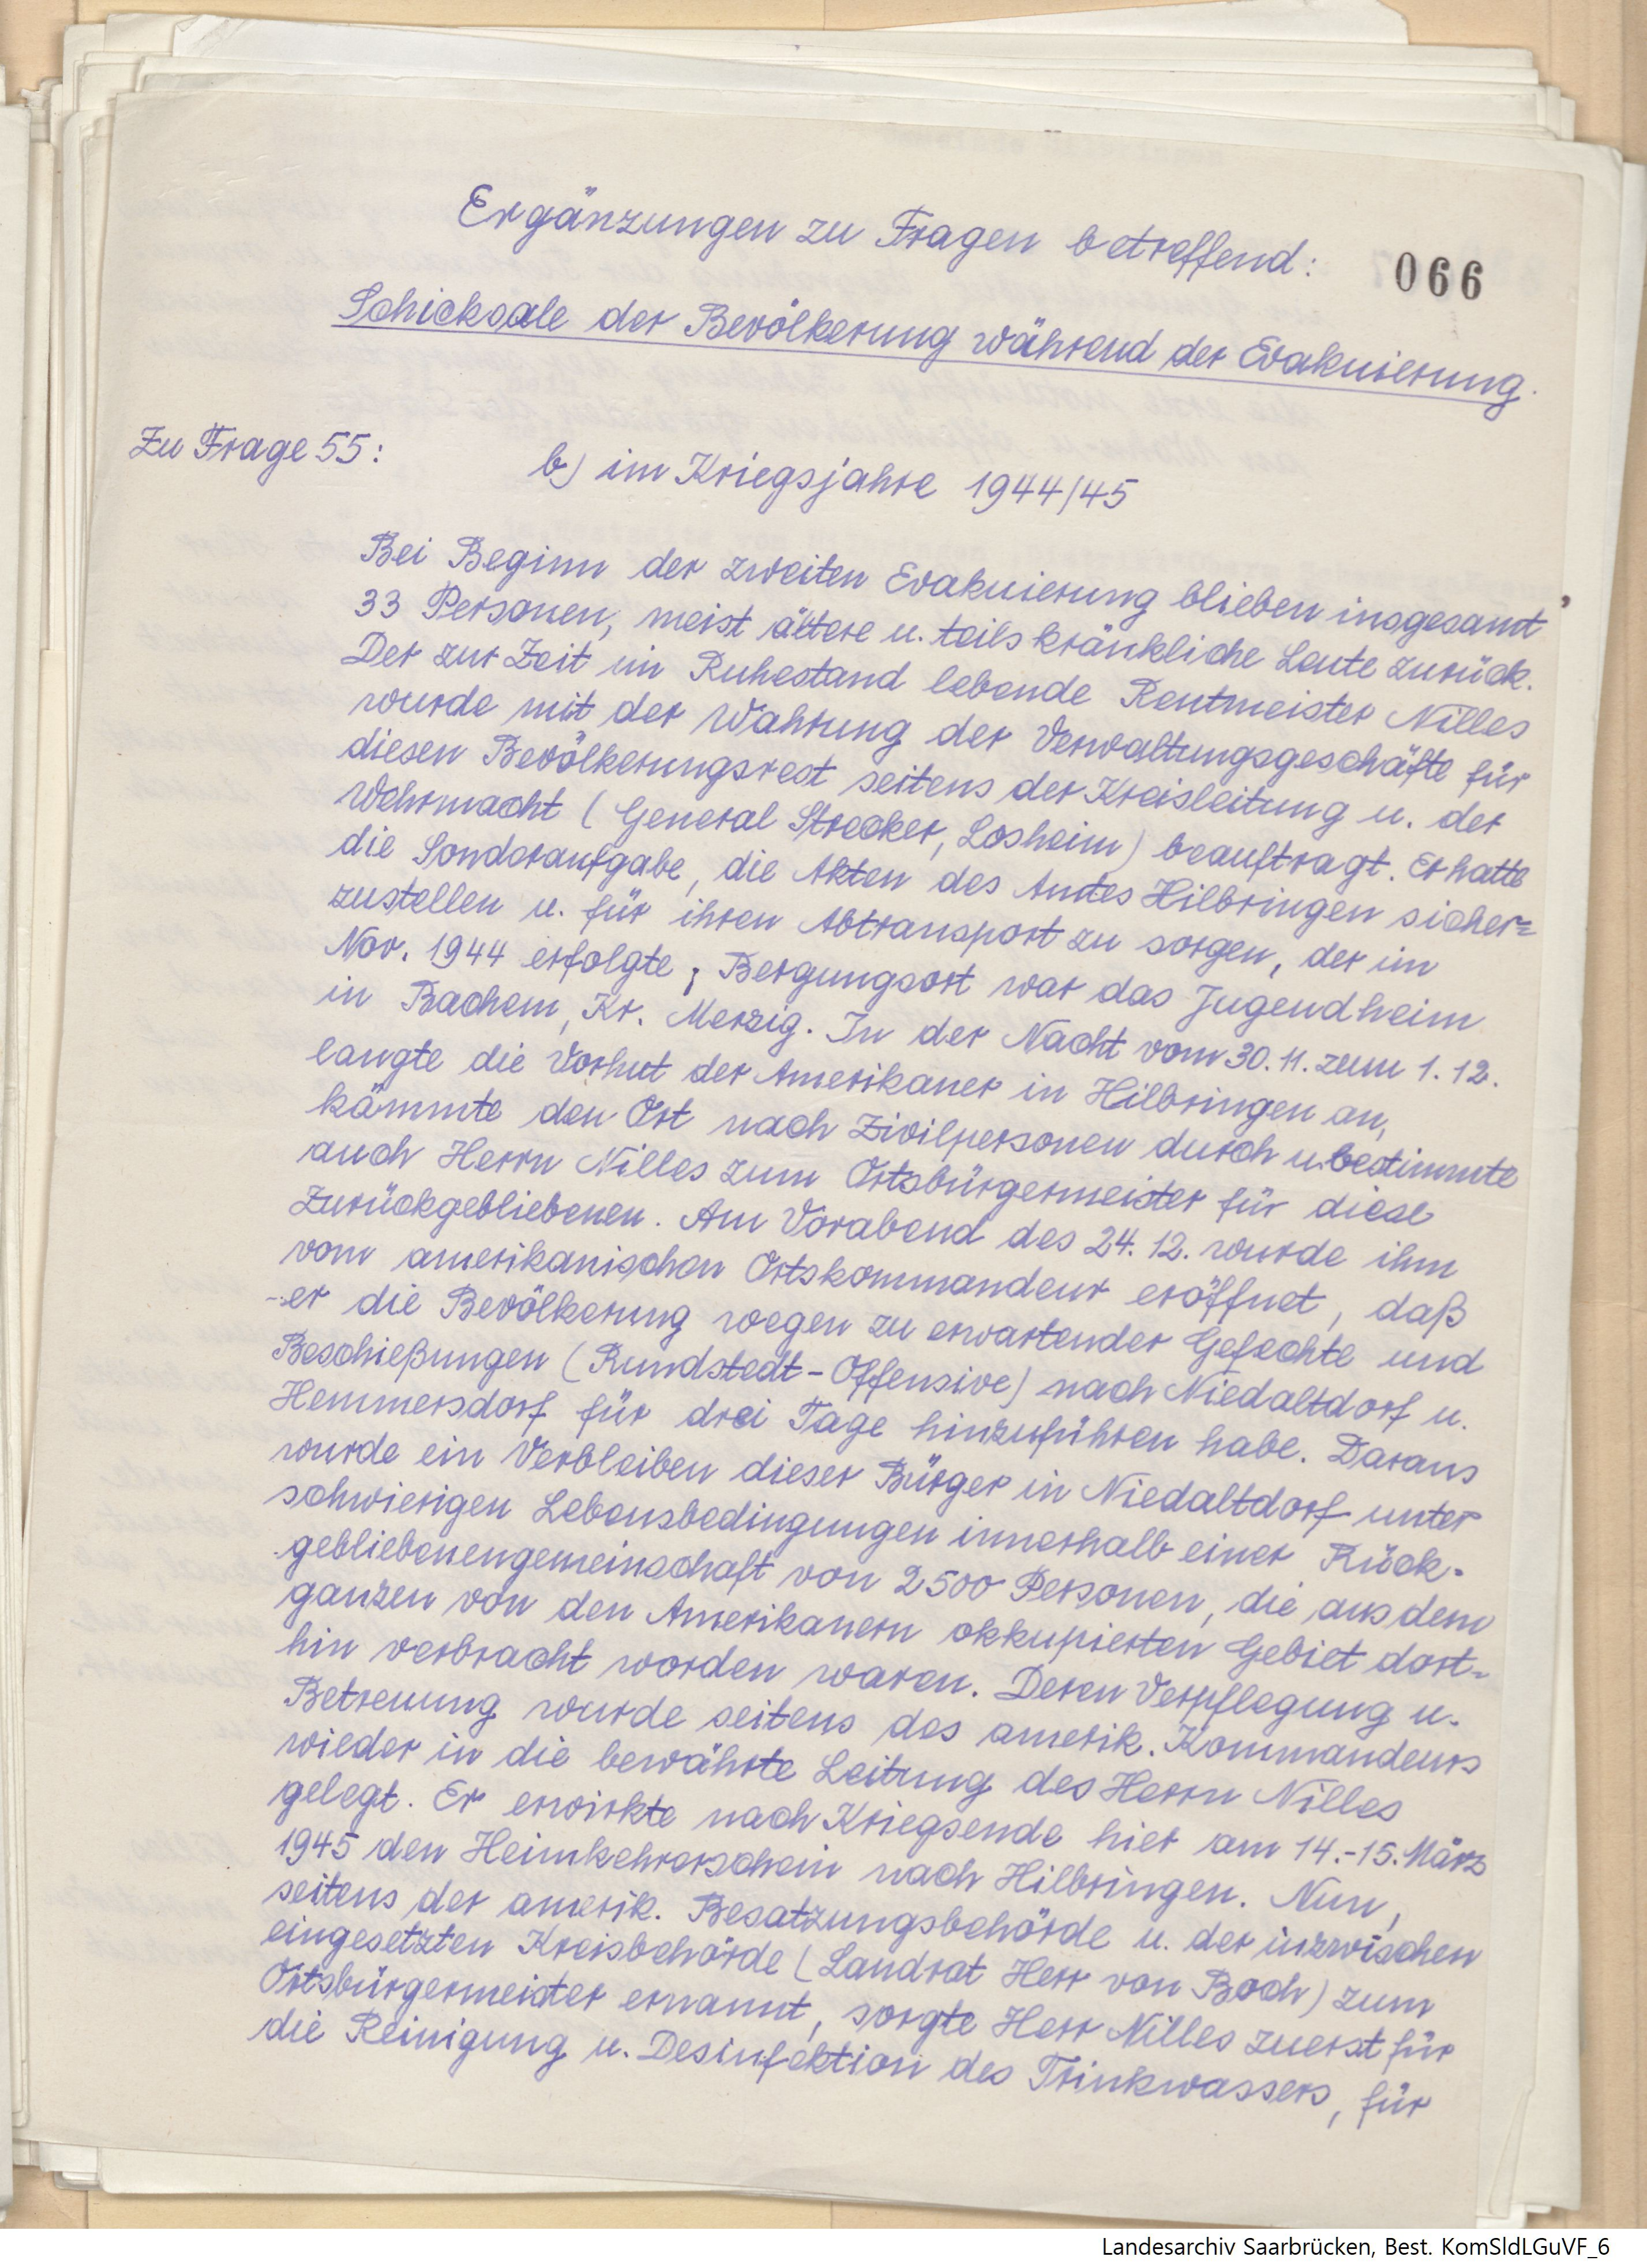 Ergänzungen zu Fragen betreffend:
066
Schicksale der Bevölkerung während der Evakuierung.
Zu Frage 55:
b) im Kriegsjahre 1944/45
Bei Beginn der zweiten Evakuierung blieben insgesamt
33 Personen, meist ältere u. teils kränkliche Leute zurück.
Der zur Zeit im Ruhestand lebende Rentmeister Nilles
wurde mit der Wahrung der Verwaltungsgeschäfte für
diesen Bevölkerungsrest seitens der Kreisleitung u. der
Wehrmacht (General Strecker, Losheim) beauftragt. Er hatte
die Sonderaufgabe, die Akten des Amtes Hilbringen sicher=
zustellen u. für ihren Abtransport zu sorgen, der im
Nov. 1944 erfolgte; Bergungsort war das Jugendheim
in Bachem, Kr. Merzig. In der Nacht vom 30.11. zum 1.12.
langte die Vorhut der Amerikaner in Hilbringen an,
kämmte den Ort nach Zivilpersonen durch u. bestimmte
auch Herrn Nilles zum Ortsbürgermeister für diese
Zurückgebliebenen. Am Vorabend des 24.12. wurde ihm
vom amerikanischen Ortskommandeur eröffnet, daß
er die Bevölkerung wegen zu erwartender Gefechte und
Beschießungen (Rundstedt-Offensive) nach Niedaltdorf u.
Hemmersdorf für drei Tage hinzuführen habe. Daraus
wurde ein Verbleiben dieser Bürger in Niedaltdorf unter
schwierigen Lebensbedingungen innerhalb einer Rück-
gebliebenengemeinschaft von 2500 Personen, die aus dem
ganzen von den Amerikanern okkupierten Gebiet dort-
hin verbracht worden waren. Deren Verpflegung u.
Betreuung wurde seitens des amerik. Kommandeurs
wieder in die bewährte Leitung des Herrn Nilles
gelegt. Er erwirkte nach Kriegsende hier am 14.-15. März
1945 den Heimkehrerschein nach Hilbringen. Nun,
seitens der amerik. Besatzungsbehörde u. der inzwischen
eingesetzten Kreisbehörde (Landrat Herr von Boch) zum
Ortsbürgermeister ernannt, sorgte Herr Nilles zuerst für
die Reinigung u. Desinfektion des Trinkwassers, für
Landesarchiv Saarbrücken, Best. KomSldLGuVF_6